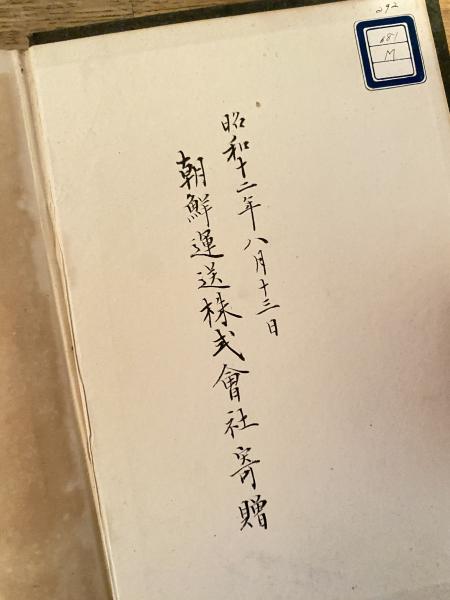 昭和十二年八月十三日
朝鮮運送株式會社寄贈
292
681
M